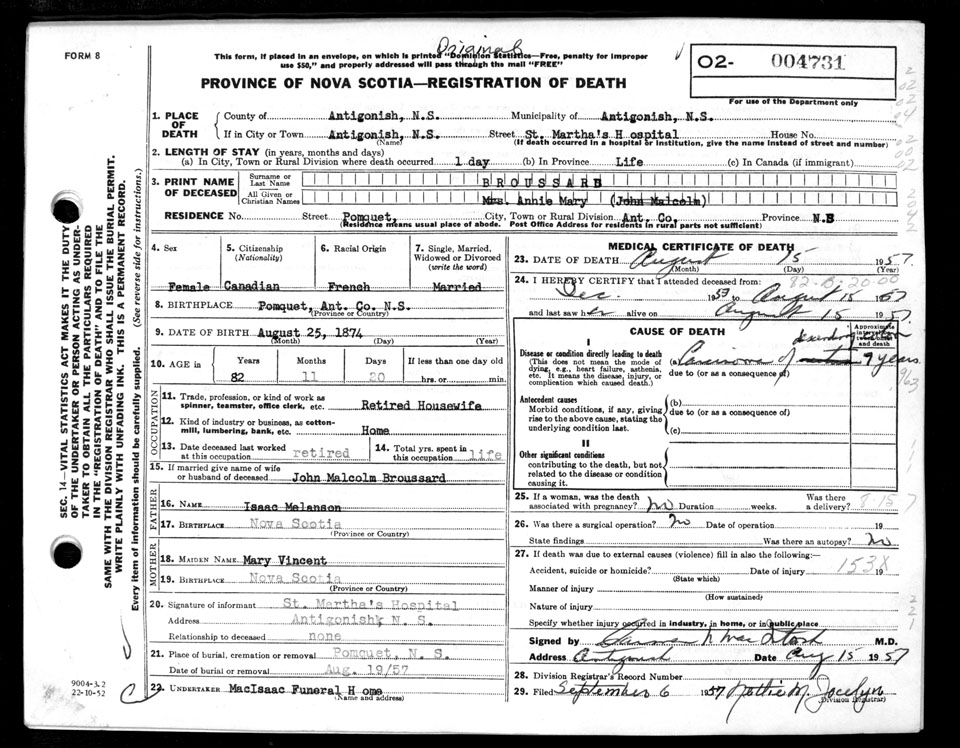 FORM 8
Original
This form, if placed in an envelope, on which is printed "Dominion Statistics—Free, penalty for improper
use $50," and properly addressed will pass through the mail "FREE"
PROVINCE OF NOVA SCOTIA—REGISTRATION OF DEATH
02- 004731
For use of the Department only
1. PLACE OF DEATH
County of Antigonish, N.S. Municipality of Antigonish, N.S.
If in City or Town Antigonish, N.S. Street St. Martha's H ospital House No.
(Name) (If death occurred in a hospital or institution, give the name instead of street and number)
2. LENGTH OF STAY (in days, months and years)
(a) In City, Town or Rural Division where death occurred 1 day (b) In Province Life (c) In Canada (if immigrant)
3. PRINT NAME OF DECEASED
Surname or Last Name BROUSSARD
All Given or Christian Names Mrs. Annie Mary (John Malcolm)
RESIDENCE No. Street Pomquet, City, Town or Rural Division Ant. Co, Province N.S
(Residence means usual place of abode. Post Office Address for residents in rural parts not sufficient)
4. Sex 5. Citizenship (Nationality) 6. Racial Origin 7. Single, Married, Widowed or Divorced (write the word)
Female Canadian French Married
8. BIRTHPLACE Pomquet, Ant. Co. N.S.
(Province or Country)
9. DATE OF BIRTH August 25, 1874
(Month) (Day) (Year)
10. AGE in Years Months Days If less than one day old
82 11 20 hrs. or min.
OCCUPATION
11. Trade, profession, or kind of work as spinner, teamster, office clerk, etc. Retired Housewife
12. Kind of industry or business, as cotton-mill, lumbering, bank, etc. Home
13. Date deceased last worked at this occupation retired 14. Total yrs. spent in this occupation life
15. If married give name of wife or husband of deceased John Malcolm Broussard
FATHER
16. NAME Isaac Melanson
17. BIRTHPLACE Nova Scotia
(Province or Country)
MOTHER
18. MAIDEN NAME Mary Vincent
19. BIRTHPLACE Nova Scotia
(Province or Country)
20. Signature of informant St. Martha's Hospital
Address Antigonish, N. S.
Relationship to deceased none
21. Place of burial, cremation or removal Pomquet, N. S.
Date of burial or removal Aug. 19/57
22. UNDERTAKER MacIsaac Funeral H ome
(Name and address)
MEDICAL CERTIFICATE OF DEATH
23. DATE OF DEATH August 15 1957.
(Month) (Day) (Year)
82-B-20.00
24. I HEREBY CERTIFY that I attended deceased from:
Dec. 1953 to August 15 1957
and last saw her alive on August 15 1957.
CAUSE OF DEATH
Approximate interval between onset and death
I
Disease or condition directly leading to death
(This does not mean the mode of dying, e.g., heart failure, asthenia, etc. It means the disease, injury, or complication which caused death.)
descending colon
(a) Carcinoma of 9 years
due to (or as a consequence of)
963
Antecedent causes
Morbid conditions, if any, giving rise to the above cause, stating the underlying condition last.
(b)
due to (or as a consequence of)
(c)
II
Other significant conditions
contributing to the death, but not related to the disease or condition causing it.
25. If a woman, was the death associated with pregnancy? No Duration weeks. Was there a delivery?
26. Was there a surgical operation? No Date of operation 19
State findings Was there an autopsy? No
27. If death was due to external causes (violence) fill in also the following:
Accident, suicide or homicide? Date of injury 19
(State which)
153X
Manner of injury
(How sustained)
Nature of injury
Specify whether injury occurred in industry, in home, or in public place
Signed by Mac Intosh M.D.
Address Antigonish Date Aug 15 1957
28. Division Registrar's Record Number
29. Filed September 6 1957 Nottie M. Jocelyn
(Division Registrar)
SEC. 14—VITAL STATISTICS ACT MAKES IT THE DUTY
OF THE UNDERTAKER OR PERSON ACTING AS UNDER-
TAKER TO OBTAIN ALL THE PARTICULARS REQUIRED
IN THE "REGISTRATION OF DEATH" AND TO FILE THE
SAME WITH THE DIVISION REGISTRAR WHO SHALL ISSUE THE BURIAL PERMIT.
WRITE PLAINLY WITH UNFADING INK. THIS IS A PERMANENT RECORD.
Every item of information should be carefully supplied. (See reverse side for instructions.)
9004-3.2
22-10-52